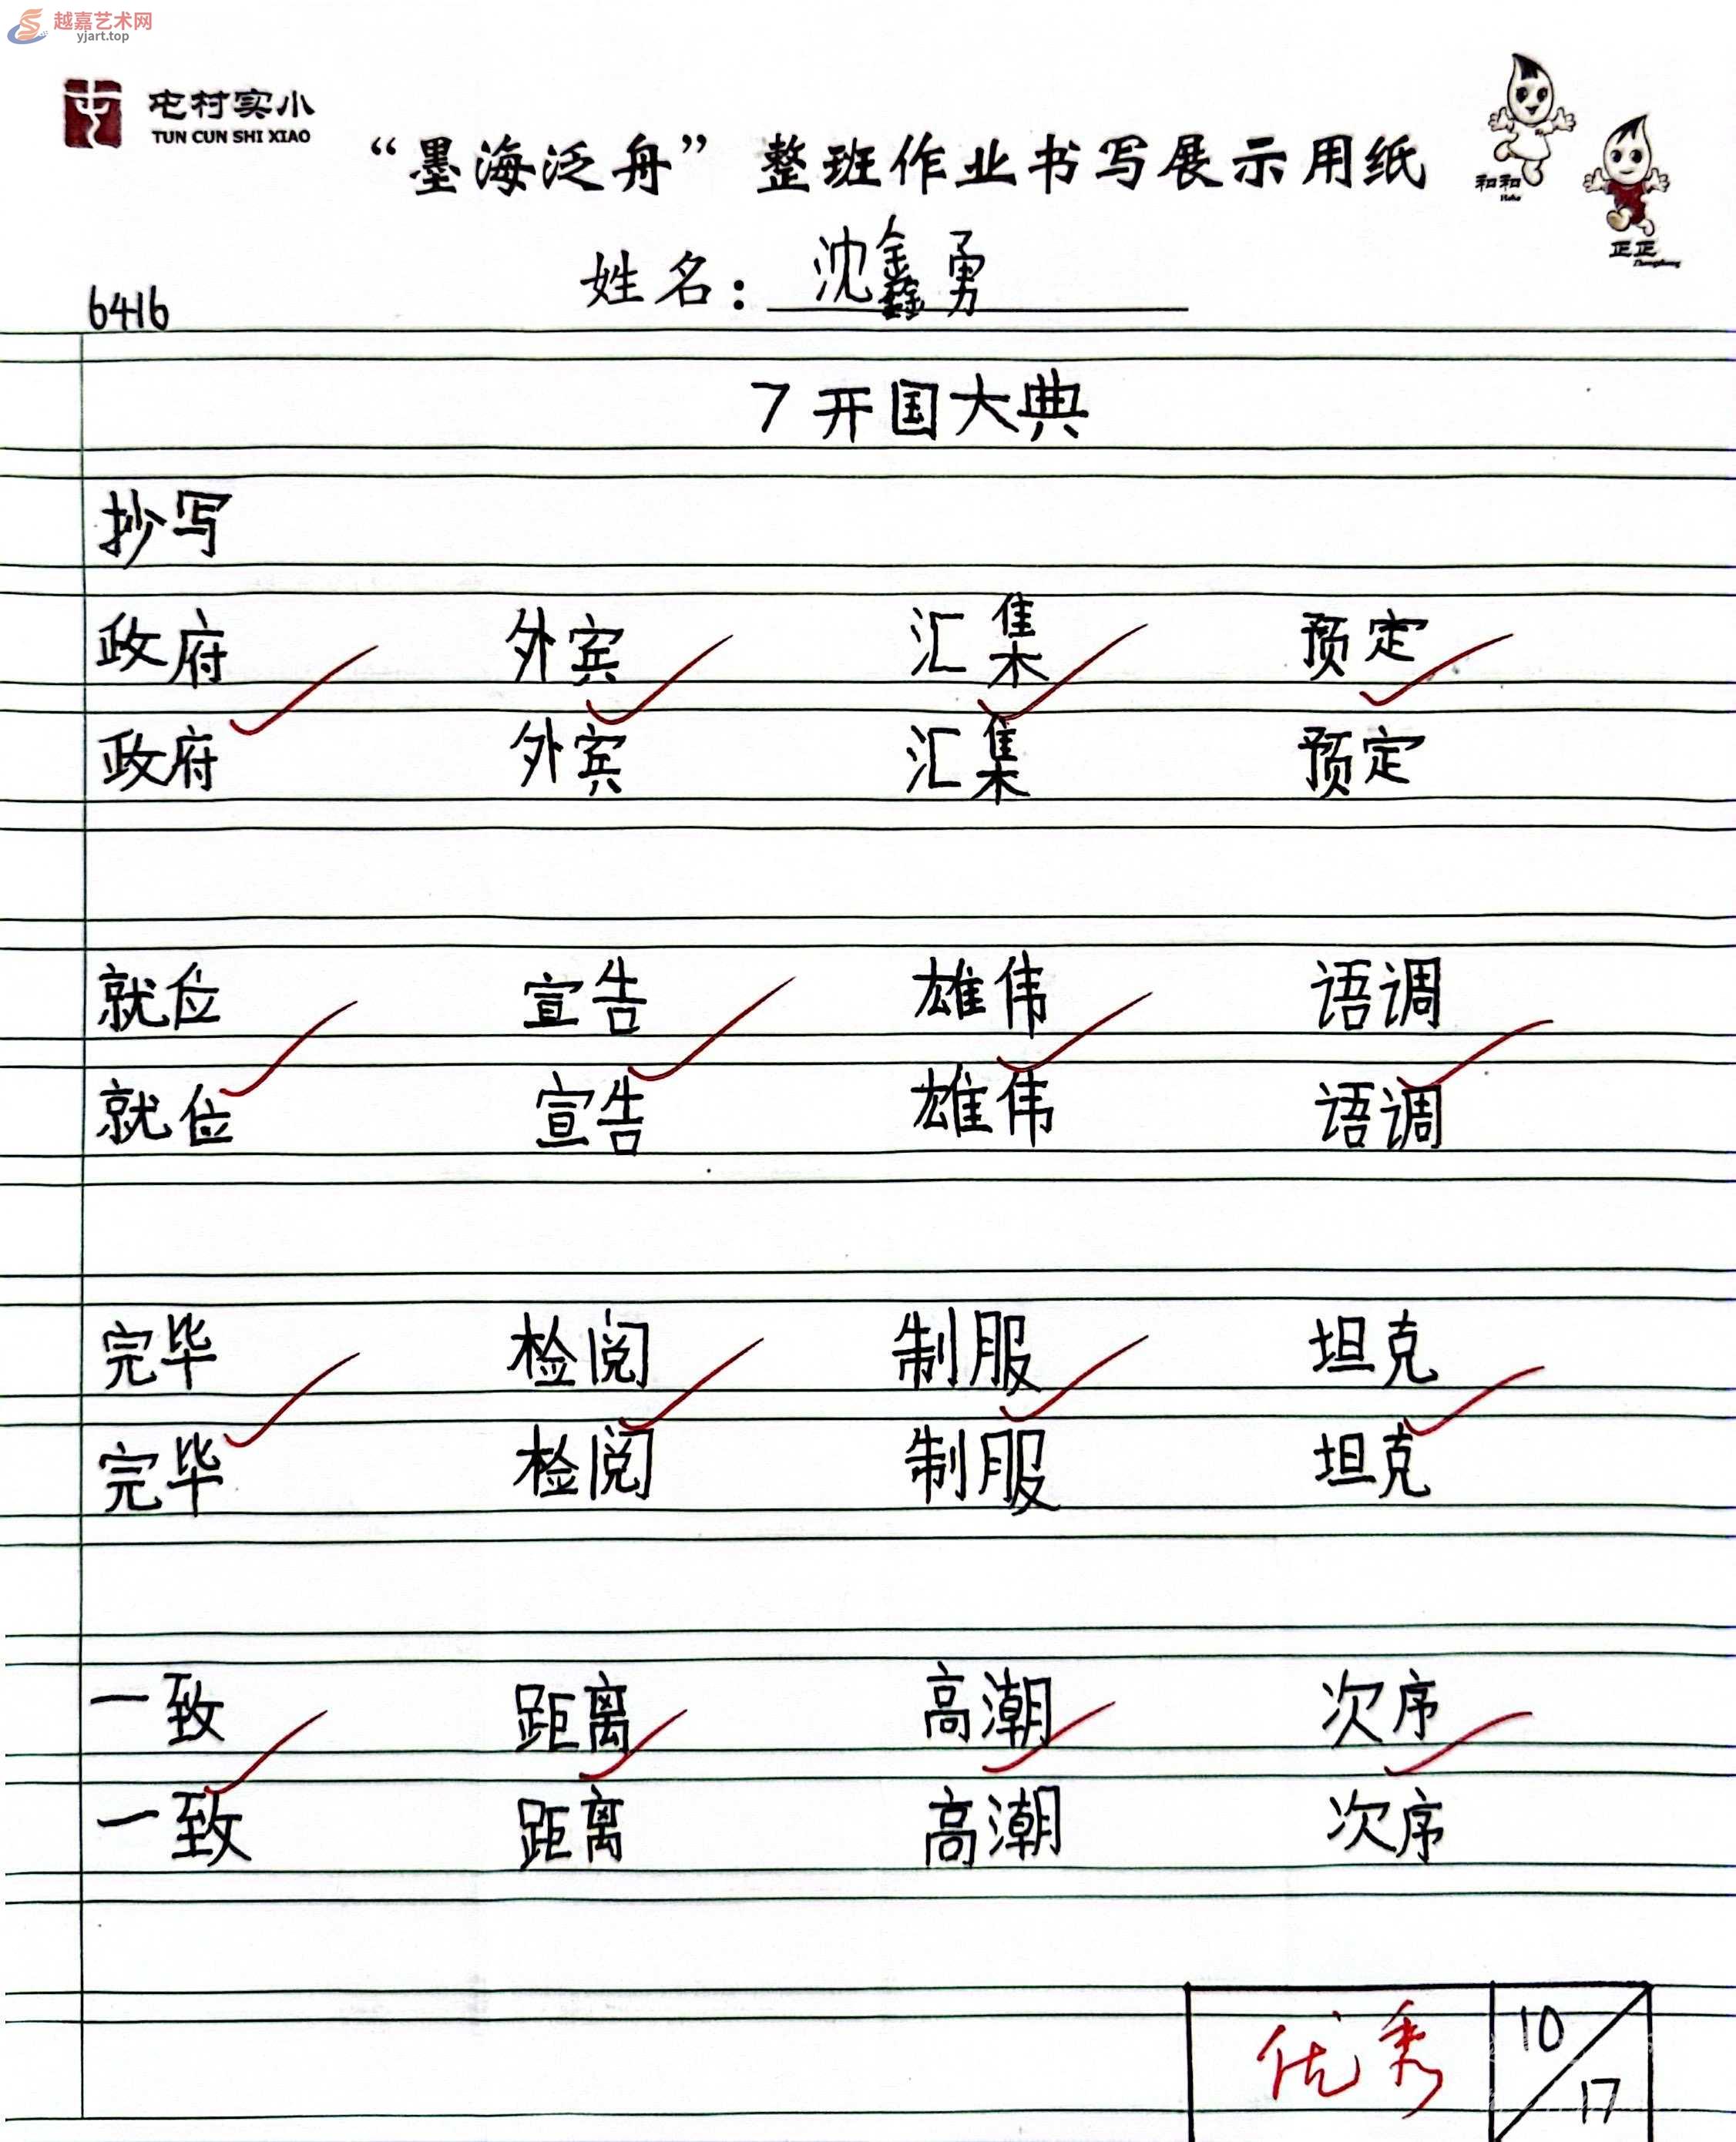 越嘉艺术网
yjart.top
屯村实小
TUN CUN SHI XIAO
“墨海泛舟” 整班作业书写展示用纸
和和
正正
姓名：沈鑫勇
6416
7 开国大典
抄写
政府 外宾 汇集 预定
政府 外宾 汇集 预定
就位 宣告 雄伟 语调
就位 宣告 雄伟 语调
完毕 检阅 制服 坦克
完毕 检阅 制服 坦克
一致 距离 高潮 次序
一致 距离 高潮 次序
优秀 10/17